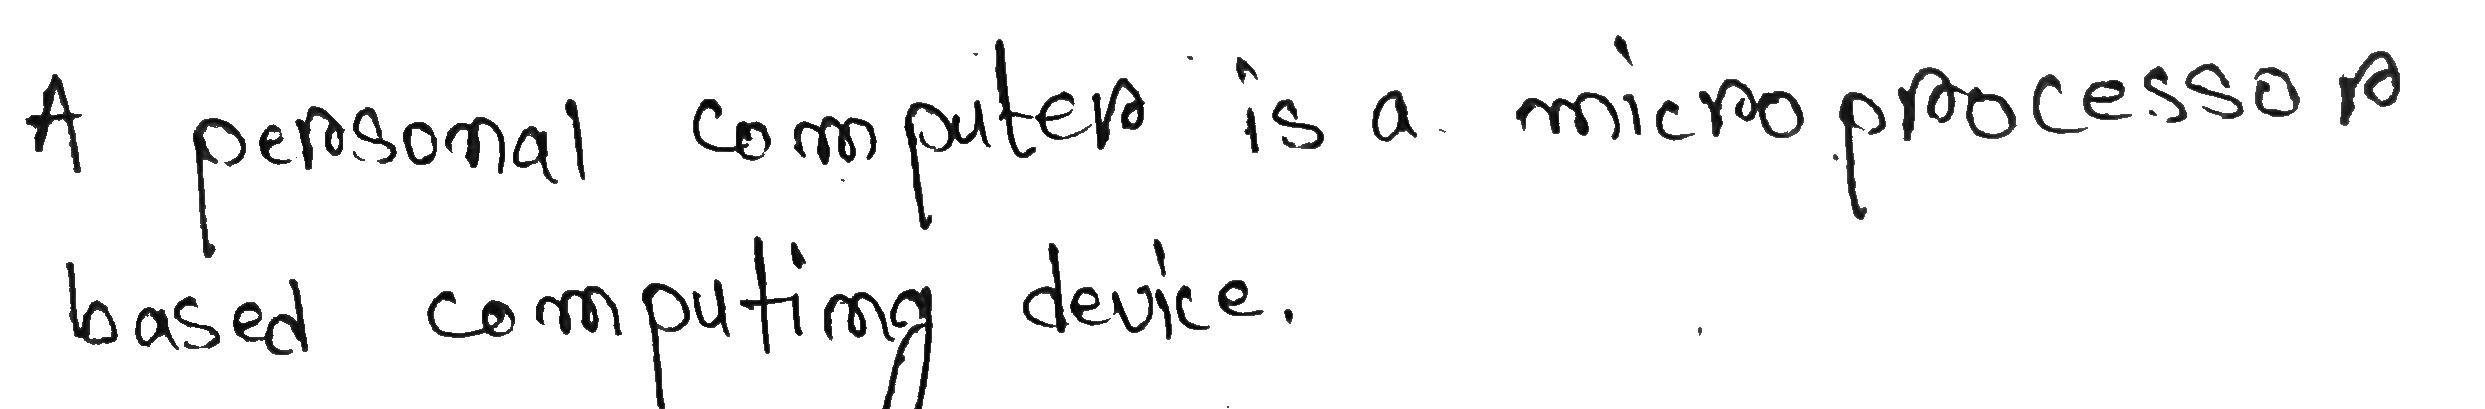 A personal computer is a microprocessor
based computing device.